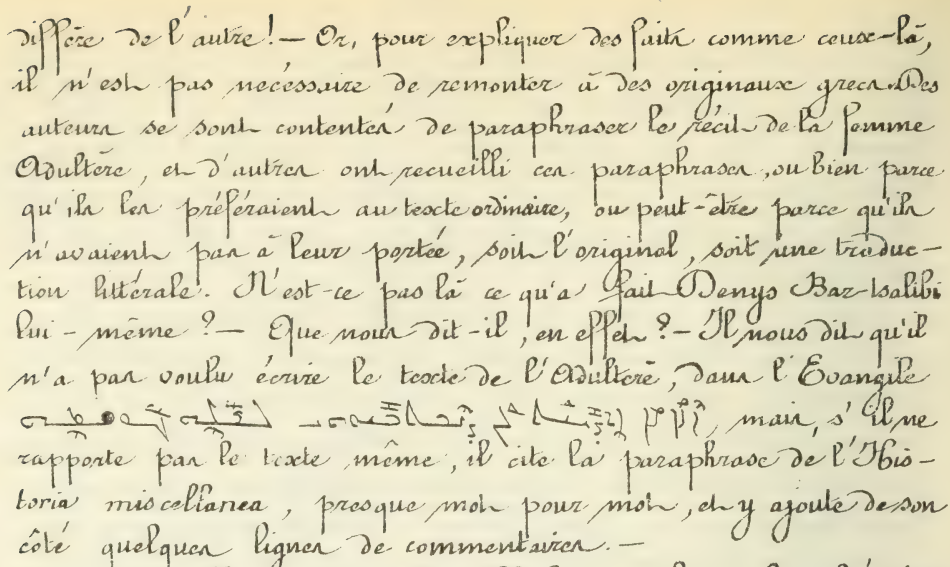 diffère de l'autre! — Or, pour expliquer des faits comme ceux-là,
il n'est pas nécessaire de remonter à des originaux grecs. Des
auteurs se sont contentés de paraphraser le récit de la femme
Adultère, et d'autres ont recueilli ces paraphrases, ou bien parce
qu'ils les préféraient au texte ordinaire, ou peut-être parce qu'ils
n'avaient pas à leur portée, soit l'original, soit une traduc-
tion littérale. N'est-ce pas là ce qu'a fait Denys Bar-Tsalibi
lui-même? — Que nous dit-il, en effet? — Il nous dit qu'il
n'a pas voulu écrire le texte de l'Adultère, dans l'Evangile
, mais, s'il ne
rapporte pas le texte même, il cite la paraphrase de l'His-
toria miscellanea, presque mot pour mot, et y ajoute de son
côté quelques lignes de commentaires. —